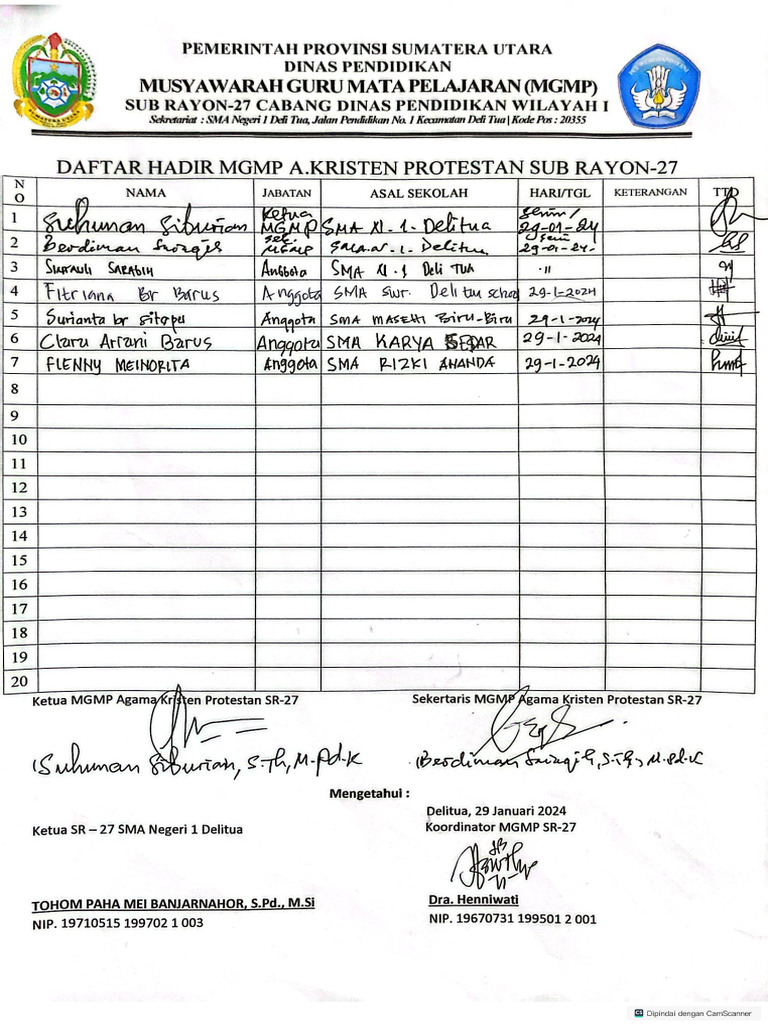 PEMERINTAH PROVINSI SUMATERA UTARA
DINAS PENDIDIKAN
MUSYAWARAH GURU MATA PELAJARAN (MGMP)
SUB RAYON-27 CABANG DINAS PENDIDIKAN WILAYAH I
Sekretariat : SMA Negeri 1 Deli Tua, Jalan Pendidikan No. 1 Kecamatan Deli Tua | Kode Pos : 20355
DAFTAR HADIR MGMP A.KRISTEN PROTESTAN SUB RAYON-27
NO NAMA JABATAN ASAL SEKOLAH HARI/TGL KETERANGAN TTD
1 Suhunan Siburian Ketua MGMP SMA N. 1. Delitua Senin/ 29-01-24
2 Berdiman SMA.N. 1. Delitua 29-01-24.
3 Anggota SMA N. 1 Deli TUA "
4 Fitriana Br Barus Anggota SMA swr. Deli tua 29-1-2024
5 Surianta br Sitepu Anggota SMA MASEHI Biru-Biru 29-1-2024
6 Clara Arriani Barus Anggota SMA KARYA 29-1-2024
7 FLENNY MEINORITA Anggota SMA RIZKI ANANDA 29-1-2024
8
9
10
11
12
13
14
15
16
17
18
19
20
Ketua MGMP Agama Kristen Protestan SR-27 Sekertaris MGMP Agama Kristen Protestan SR-27
Suhunan Siburian, S.Th, M.Pd.K Berdiman M.Pd.K
Mengetahui :
Delitua, 29 Januari 2024
Ketua SR – 27 SMA Negeri 1 Delitua Koordinator MGMP SR-27
TOHOM PAHA MEI BANJARNAHOR, S.Pd., M.Si Dra. Henniwati
NIP. 19710515 199702 1 003 NIP. 19670731 199501 2 001
CS Dipindai dengan CamScanner